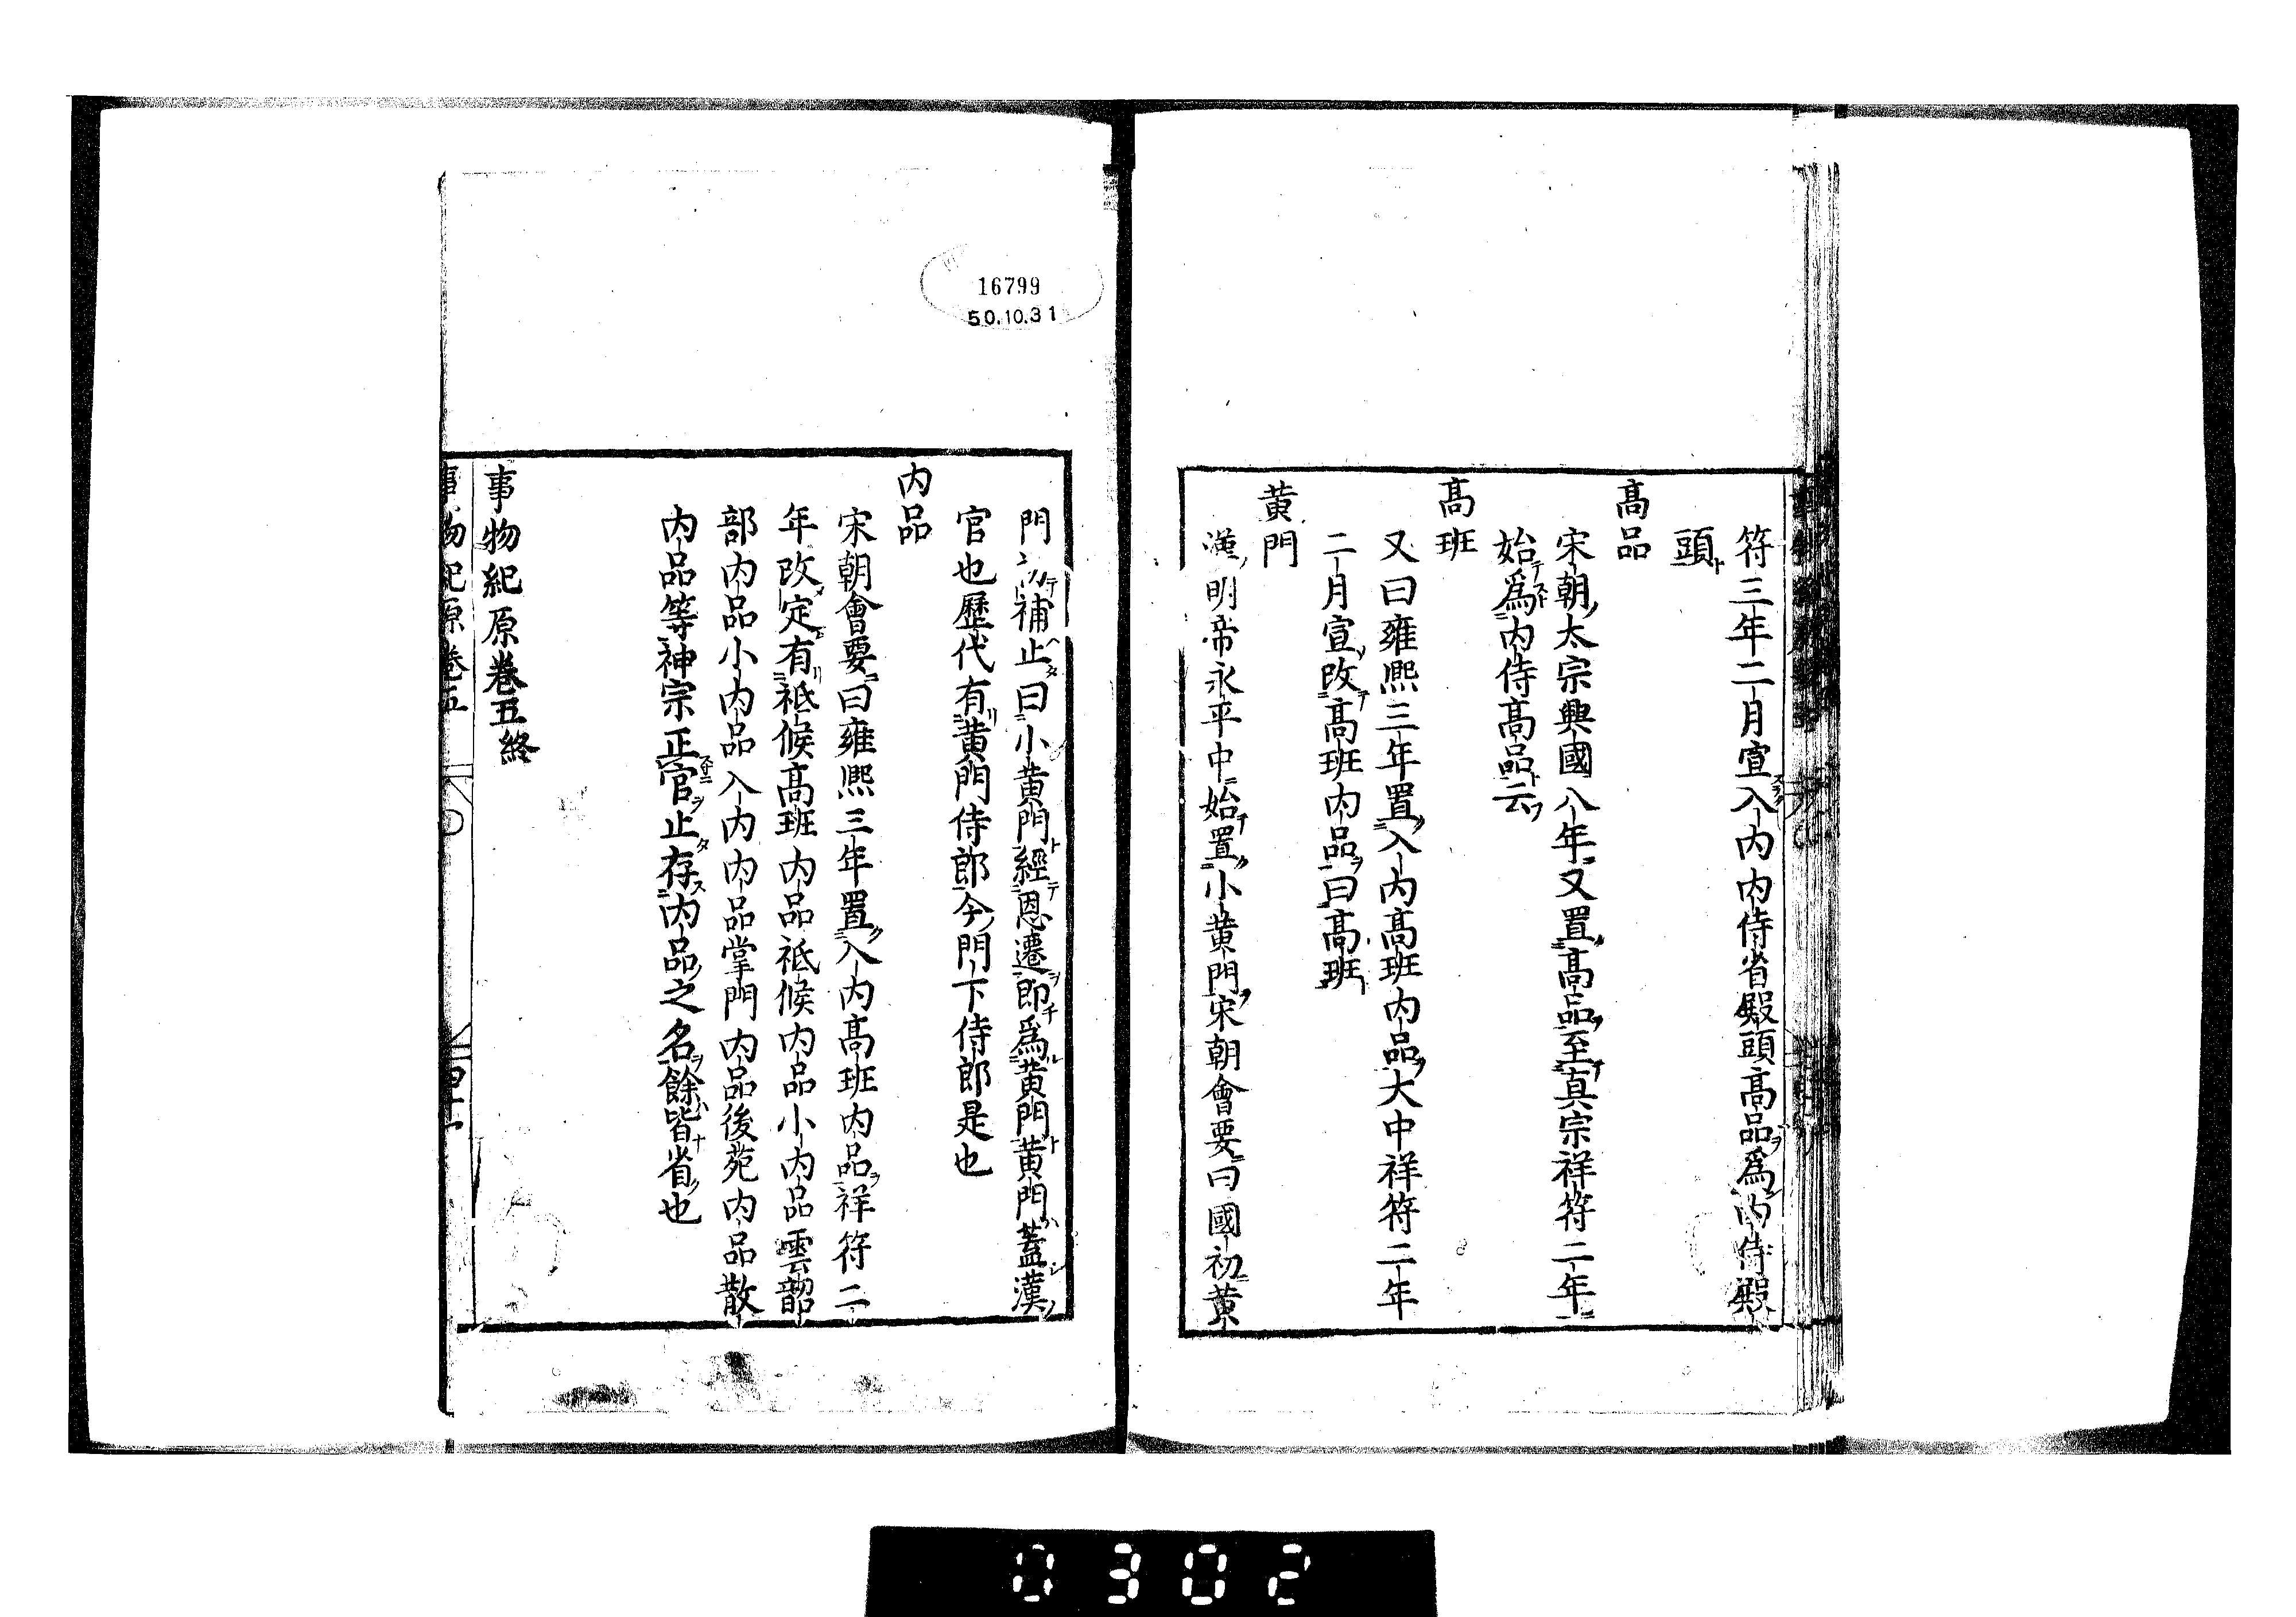 符三年二月宣入内内侍省殿頭高品爲内侍殿
頭
高品
宋朝太宗興國八年又置高品至真宗祥符二年
始爲内侍高品云
高班
又曰雍熙三年置入内高班内品大中祥符二年
二月宣改高班内品曰高班
黄門
漢明帝永平中始置小黄門宋朝會要曰國初黄
門初補止曰小黄門經恩遷即爲黄門黄門蓋漢
官也歷代有黄門侍郎今門下侍郎是也
内品
宋朝會要曰雍熙三年置入内高班内品祥符二
年改定有祗候高班内品祗候内品小内品雲韶
部内品小内品入内内品掌門内品後苑内品散
内品等神宗正官止存内品之名餘皆省也
事物紀原卷五終
事物紀原卷五
16799
50.10.31
0302